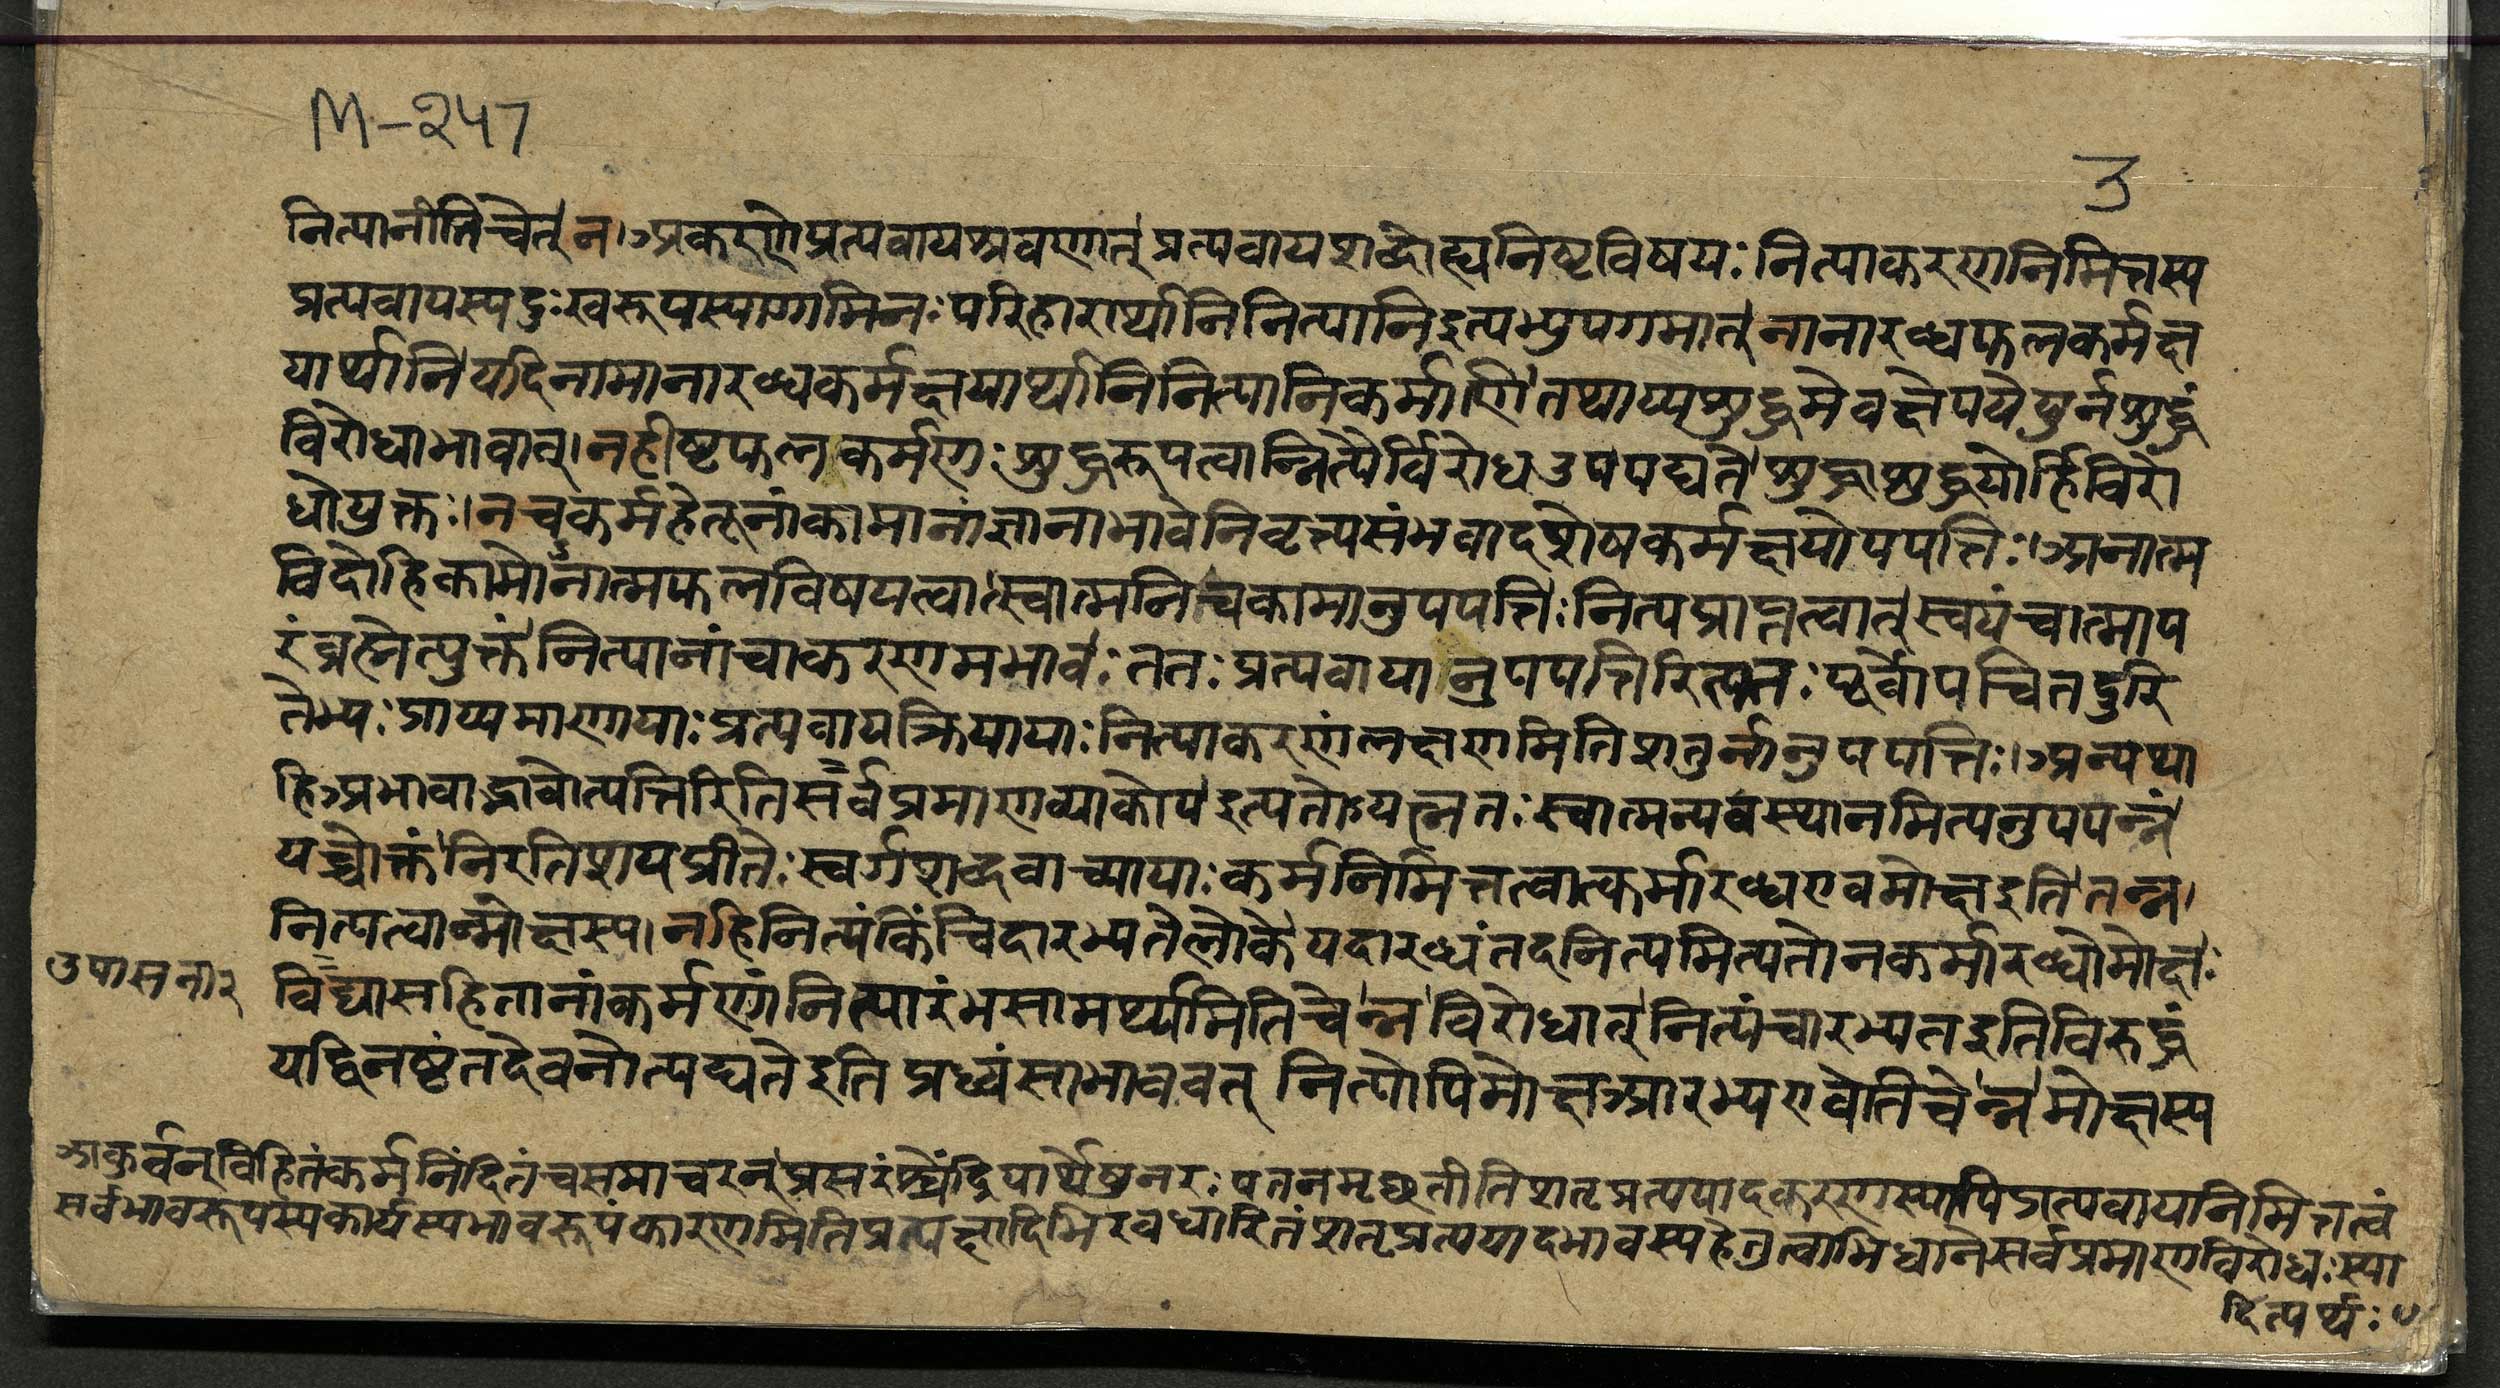 M-247
3
नित्यानीति चेत् न। अकरणे प्रत्यवायश्रवणात् प्रत्यवायशब्दो ह्यनिष्टविषयः नित्याकरणनिमित्तस्य
प्रत्यवायस्य दुःखरूपस्यागामिनः परिहारार्थानि नित्यानि इत्यभ्युपगमात् नानारब्धफलकर्मक्ष
यार्थानि यदि नामानारब्धकर्मक्षयार्थानि नित्यानि कर्माणि तथाप्यशुद्धमेव क्षपयेयुर्न शुद्धं
विरोधाभावात्। न हीष्टफलकर्मणः शुद्धरूपत्वान्नित्यैर्विरोध उपपद्यते शुद्धाशुद्धयोर्हि विरो
धो युक्तः। न च कर्महेतूनां कामानां ज्ञानाभावे निवृत्त्यसंभवादशेषकर्मक्षयोपपत्तिः। अनात्म
विदो हि कामोऽनात्मफलविषयत्वात् स्वात्मनि च कामानुपपत्तिः नित्यप्राप्तत्वात् स्वयं चात्मा प
रं ब्रह्मेत्युक्तं नित्यानां चाकरणमभावः ततः प्रत्यवायानुपपत्तिरित्यतः पूर्वोपचितदुरि
तेभ्यः प्राप्यमाणायाः प्रत्यवायक्रियायाः नित्याकरणं लक्षणमिति शतुर्नानुपपत्तिः। अन्यथा
हि अभावाद्भावोत्पत्तिरिति सर्वप्रमाणव्याकोप इत्यतोऽयत्नतः स्वात्मन्यवस्थानमित्यनुपपन्नं
यच्चोक्तं निरतिशयप्रीतेः स्वर्गशब्दवाच्यायाः कर्मनिमित्तत्वात्कर्मारब्ध एव मोक्ष इति तन्न।
नित्यत्वान्मोक्षस्य। न हि नित्यं किंचिदारभ्यते लोके यदारब्धं तदनित्यमित्यतो न कर्मारब्धो मोक्षः
उपासना२
विद्यासहितानां कर्मणां नित्यारंभसामर्थ्यमिति चेन्न विरोधात् नित्यं चारभ्यत इति विरुद्धं
यद्विनष्टं तदेव नोत्पद्यते इति प्रध्वंसाभाववत् नित्योपि मोक्ष आरभ्य एवेति चेन्न मोक्षस्य
अकुर्वन् विहितं कर्म निंदितं च समाचरन् प्रसरंश्चेंद्रियार्थेषु नरः पतनमृच्छतीति शतृप्रत्ययादकरणस्यापि प्रत्यवायनिमित्तत्वं
सर्वभावरूपस्य कार्यस्य भावरूपं कारणमिति प्रत्यक्षादिभिरवधारितं शतृप्रत्ययादभावस्य हेतुत्वाभिधाने सर्वप्रमाणविरोधः स्या
दित्यर्थः